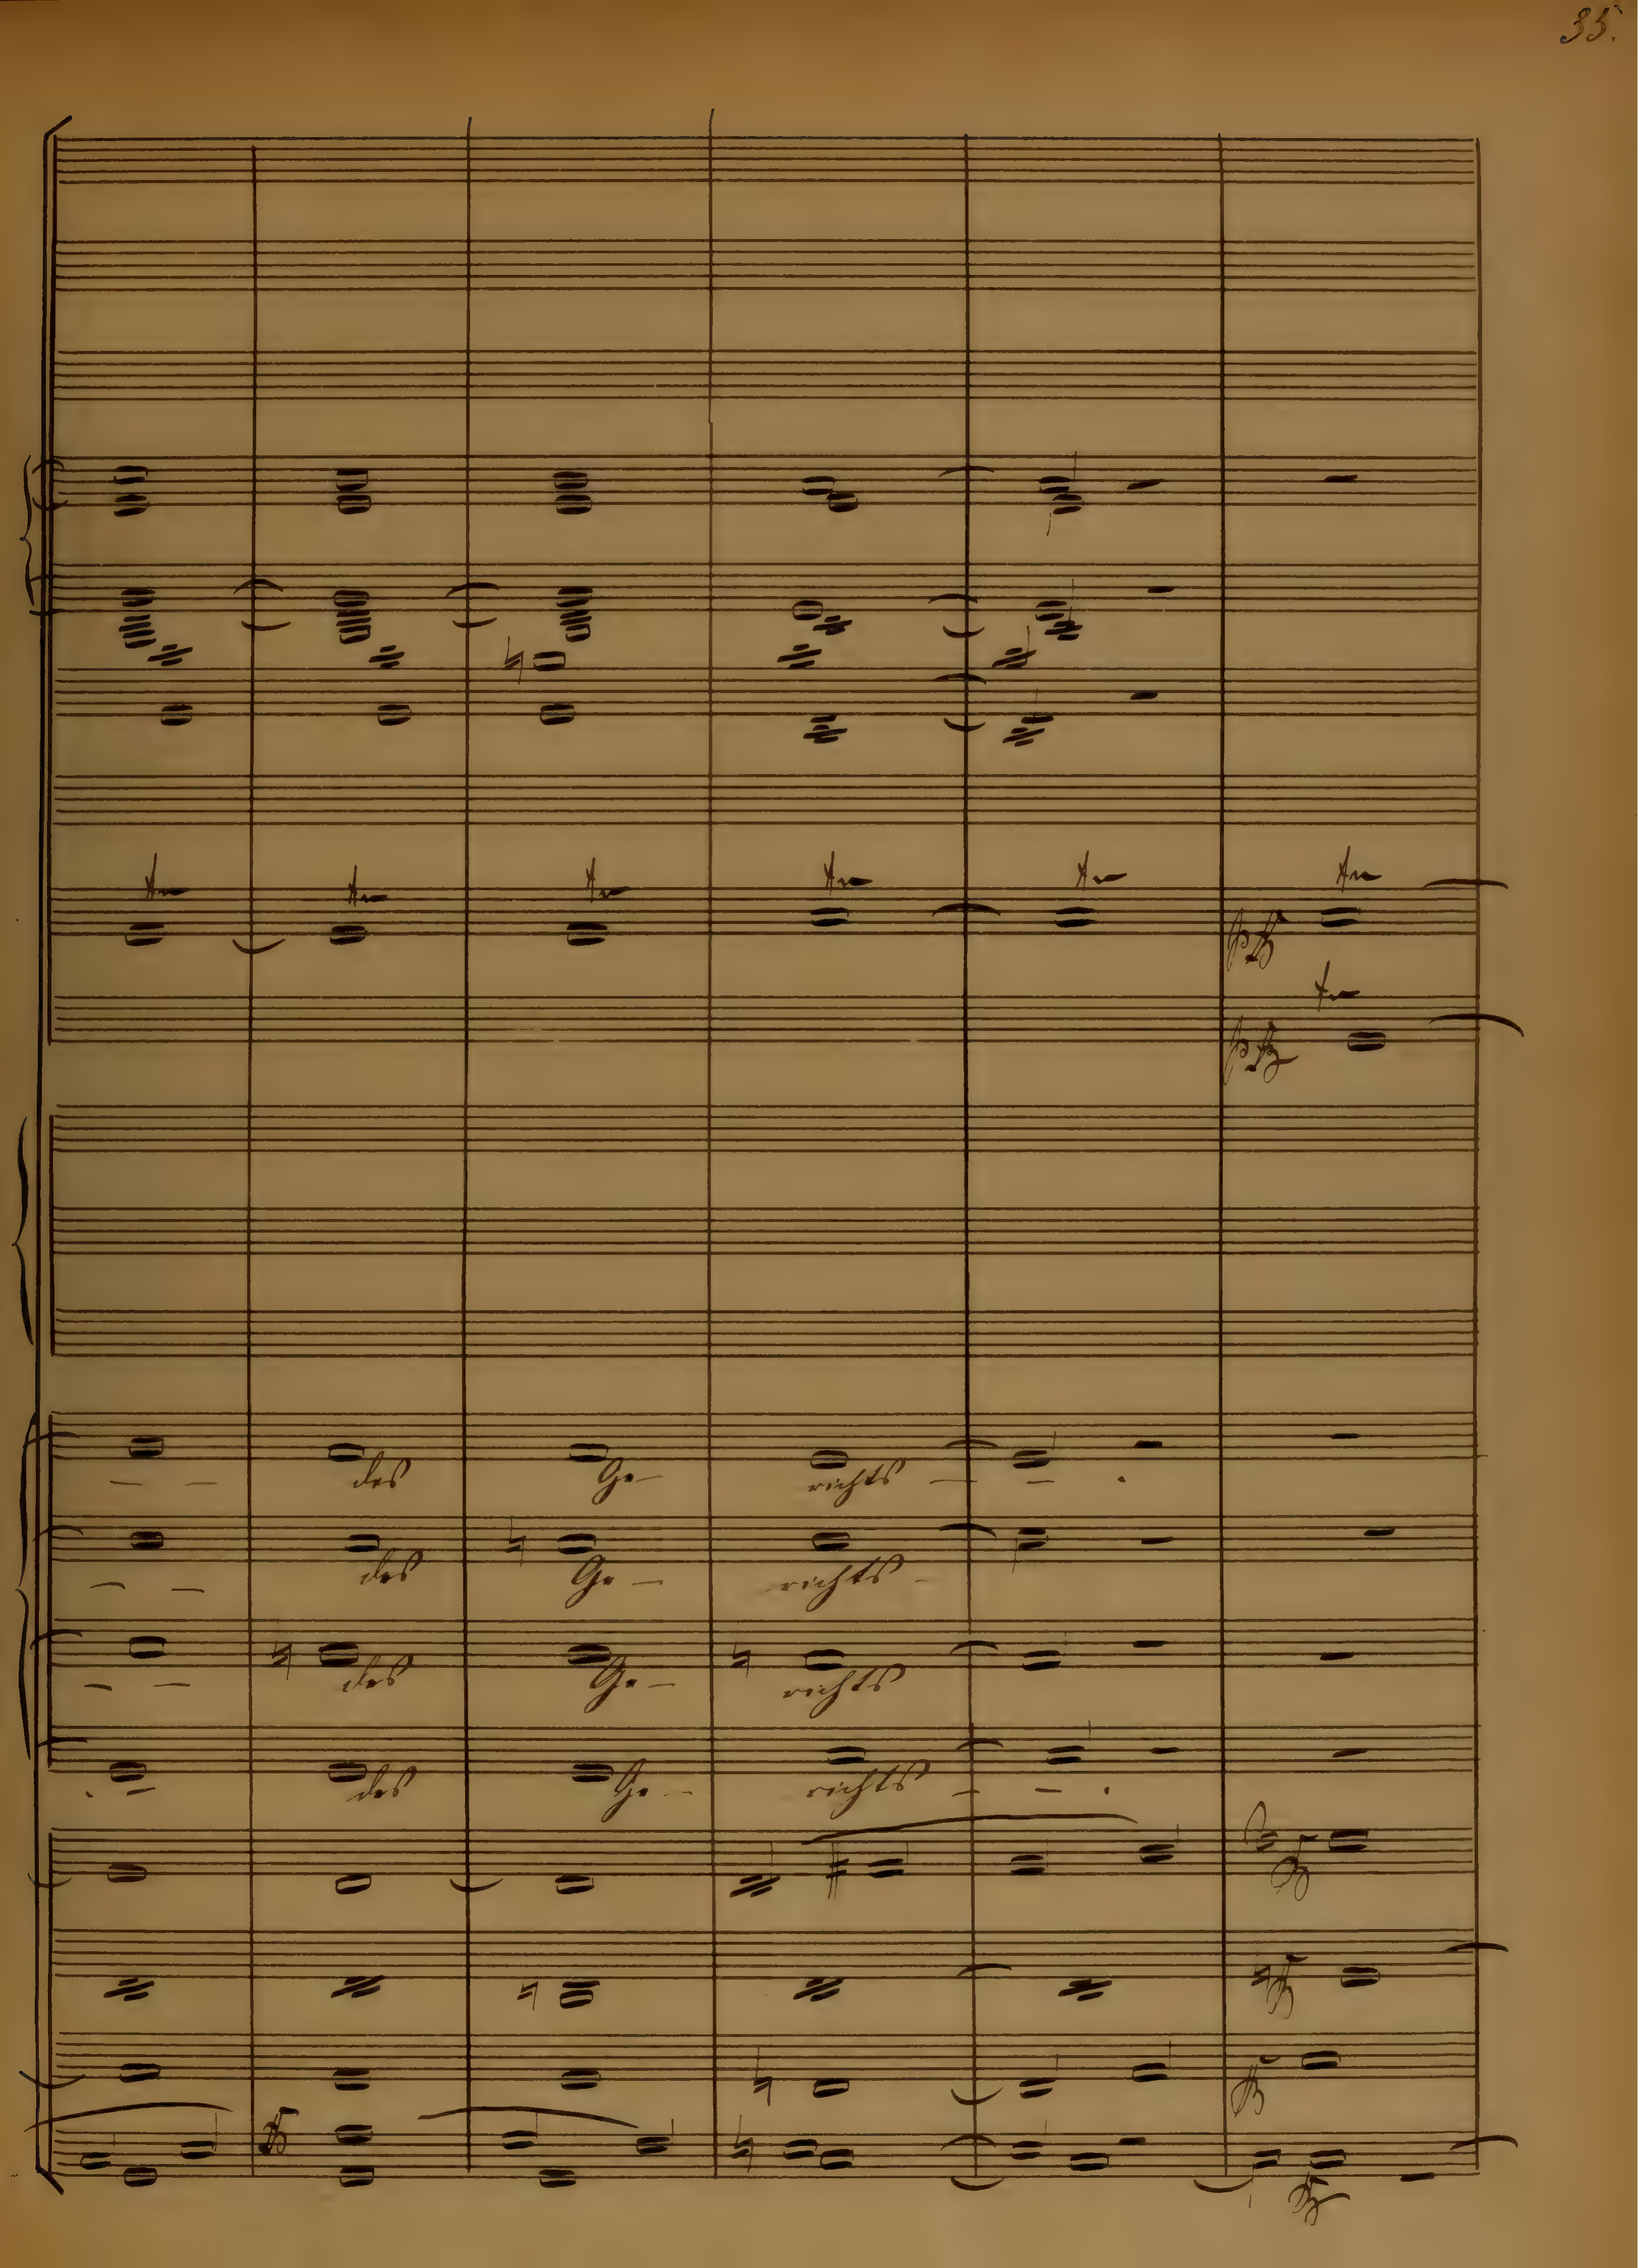 35.
des Ge- richts - - .
des Ge - richts -
des Ge - richts
des Ge - richts - - .